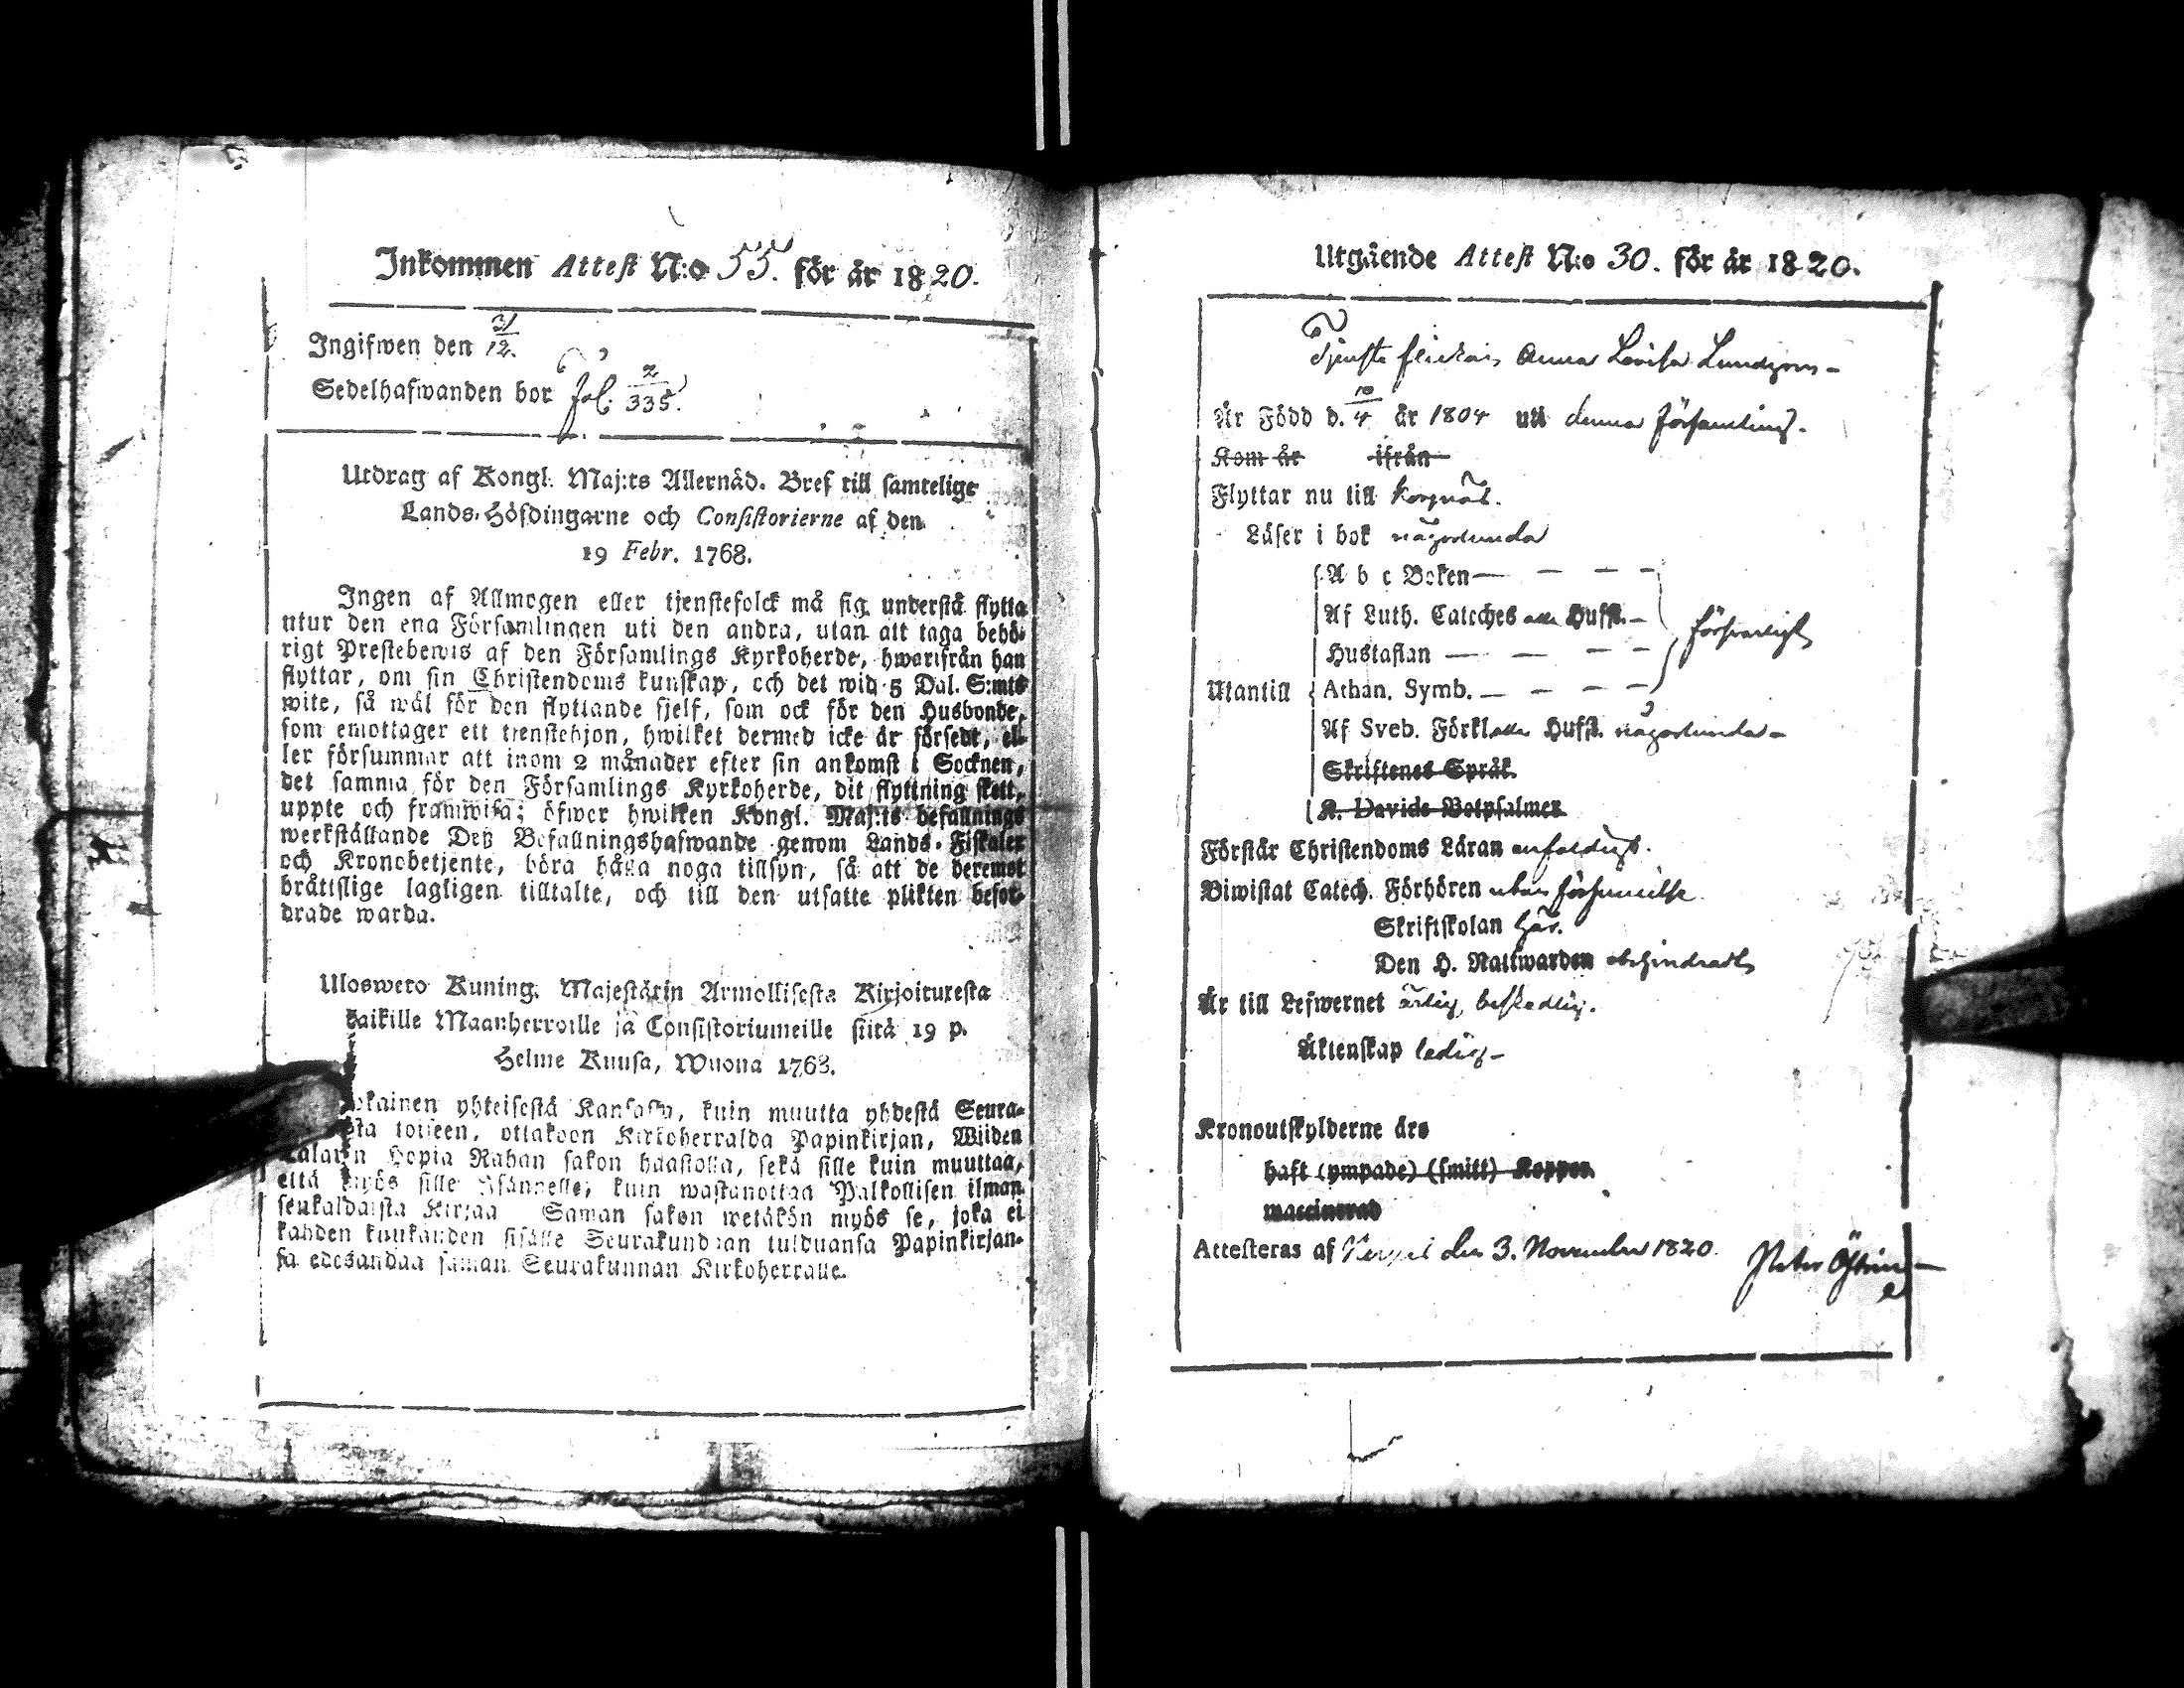 Inkommen Attest N:o 55. för år 1820.
Ingifwen den 31/12.
Sedelhafwanden bor fol. 2/335.
Utdrag af Kongl. Maj:ts Allernåd. Bref till samtelige
Lands-Höfdingarne och Consistorierne af den
19 Febr. 1768.
Ingen af Allmogen eller tjenstefolck må sig understå flytta
utur den ena Församlingen uti den andra, utan att taga behö-
rigt Prestebewis af den Församlings Kyrkoherde, hwarifrån han
flyttar, om sin Christendoms kunskap, och det wid 5 Dal. S:mts
wite, så wäl för den flyttande sjelf, som ock för den Husbonde,
som emottager ett tjenstehjon, hwilket dermed icke är försedt, el-
ler försummar att inom 2 månader efter sin ankomst i Socknen,
det samma för den Församlings Kyrkoherde, dit flyttning skett,
uppte och framwisa; öfwer hwilken Kongl. Maj:ts befallnings
werkställande Deß Befallningshafwande genom Lands-Fiskaler
och Kronobetjente, böra hålla noga tillsyn, så att de deremot
bråttslige lagligen tilltalte, och till den utsatte plikten befor-
drade warda.
Uloswero Kuning. Majestärin Armollisesta Kirjoituxesta
kaikille Maanherroille ja Consistoriumeille siitä 19 p.
Helme Kuusa, Wuona 1768.
okainen yhteisestä Kansasta, kuin muutta yhdestä Seura-
sta toiseen, ottakoon Kirkoherralda Papinkirjan, Wiiden
Talarin Hopia Rahan sakon haastolla, sekä sille kuin muuttaa,
että myös sille Isännelle, kuin wastanottaa Palkollisen ilman
senkaldaista Kirjaa Saman sakon wetäkön myös se, joka ei
kahden kuukauden sisälle Seurakundaan tulduansa Papinkirjan-
sa edesandaa saman Seurakunnan Kirkoherralle.
Utgående Attest N:o 30. för år 1820.
Tjenste flickan Anna Lovisa
Är Född d. 10/4 år 1804 uti denna Församling.
Kom år ifrån
Flyttar nu till Korpnäs.
Läser i bok någorlunda
A b c Boken
Af Luth. Catches alla Hufst.
Hustaflan
försvarligt
Utantill Athan. Symb.
Af Sveb. Förkl. alla Hufst. någorlunda
Skriftenes Språk.
K. Davids Botpsalmer
Förstår Christendoms Läran enfaldigt.
Biwistat Catech. Förhören utan försummelse.
Skriftskolan här.
Den H. Nattwarden obehindradt
Är till Lefwernet ärlig, beskedlig.
Äktenskap ledig
Kronoutskylderne äro
haft (ympade) (smitt) Koppor.
waccinerad
Attesteras af den 3. November 1820.